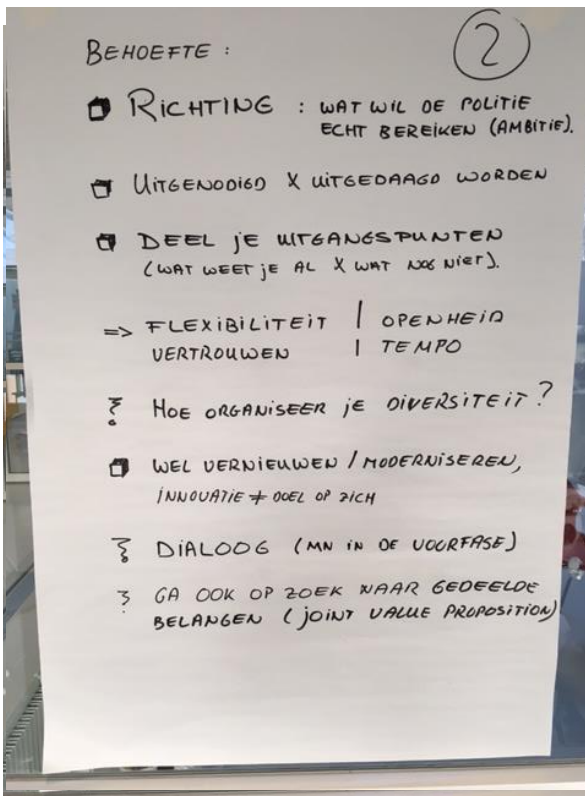 2
BEHOEFTE :
RICHTING : WAT WIL DE POLITIE
ECHT BEREIKEN (AMBITIE).
UITGENODIGD & UITGEDAAGD WORDEN
DEEL JE UITGANGSPUNTEN
(WAT WEET JE AL & WAT NOG NIET).
=> FLEXIBILITEIT | OPENHEID
VERTROUWEN | TEMPO
HOE ORGANISEER JE DIVERSITEIT?
WEL VERNIEUWEN / MODERNISEREN,
INNOVATIE ≠ DOEL OP ZICH
DIALOOG (MN IN DE VOORFASE)
GA OOK OP ZOEK NAAR GEDEELDE
BELANGEN (JOINT VALUE PROPOSITION)